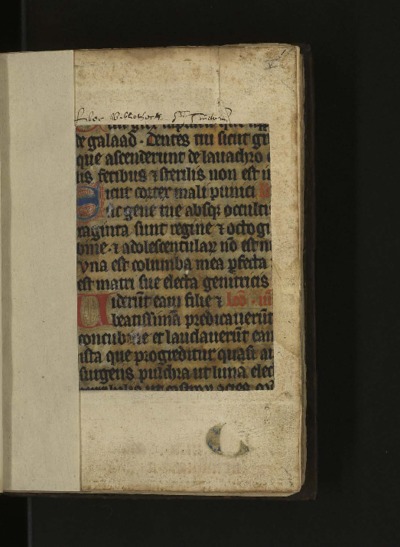 Liber Bibliothecæ
de galaad . Dentes tui sicut
que ascenderunt de lauachro
fetibus ⁊ sterilis non est
icut cortex mali punici
ut gene tue absq; occulti
raginta sunt regine ⁊ octogi
bine . ⁊ adolescentulaꝝ nō est
Vna est columba mea ꝑfecta
est matri sue electa genitricis
iderūt eam filie ⁊
beatissimā predicauerūt
concubine et laudauerūt eam
ista que progreditur quasi au
surgens pulchra ut luna elec